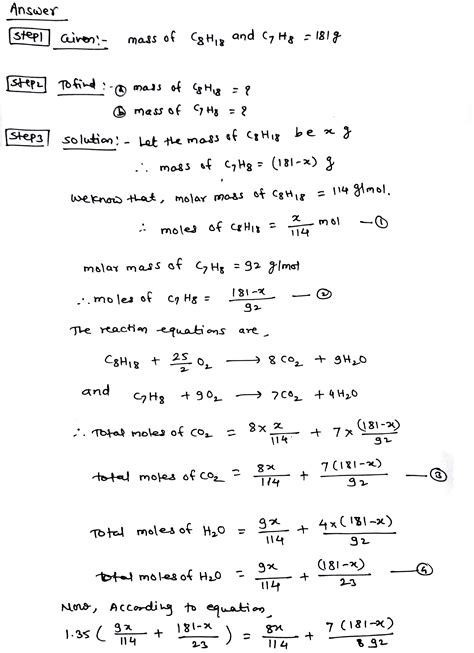 Answer
Step1 Given:- mass of C8H18 and C7H8 = 181g
Step2 To find :- ⓐ mass of C8H18 = ?
ⓑ mass of C7H8 = ?
Step3 Solution:- Let the mass of C8H18 be x g
∴ mass of C7H8 = (181-x) g
we know that, molar mass of C8H18 = 114 g/mol.
∴ moles of C8H18 = x/114 mol —①
molar mass of C7H8 = 92 g/mol
∴ moles of C7H8 = 181-x/92 —②
The reaction equations are,
C8H18 + 25/2 O2 ⟶ 8CO2 + 9H2O
and C7H8 + 9O2 ⟶ 7CO2 + 4H2O
∴ Total moles of CO2 = 8× x/114 + 7× (181-x)/92
total moles of CO2 = 8x/114 + 7(181-x)/92 —③
Total moles of H2O = 9x/114 + 4×(181-x)/92
total moles of H2O = 9x/114 + (181-x)/23 —④
Now, According to equation,
1.35 ( 9x/114 + 181-x/23 ) = 8x/114 + 7(181-x)/92